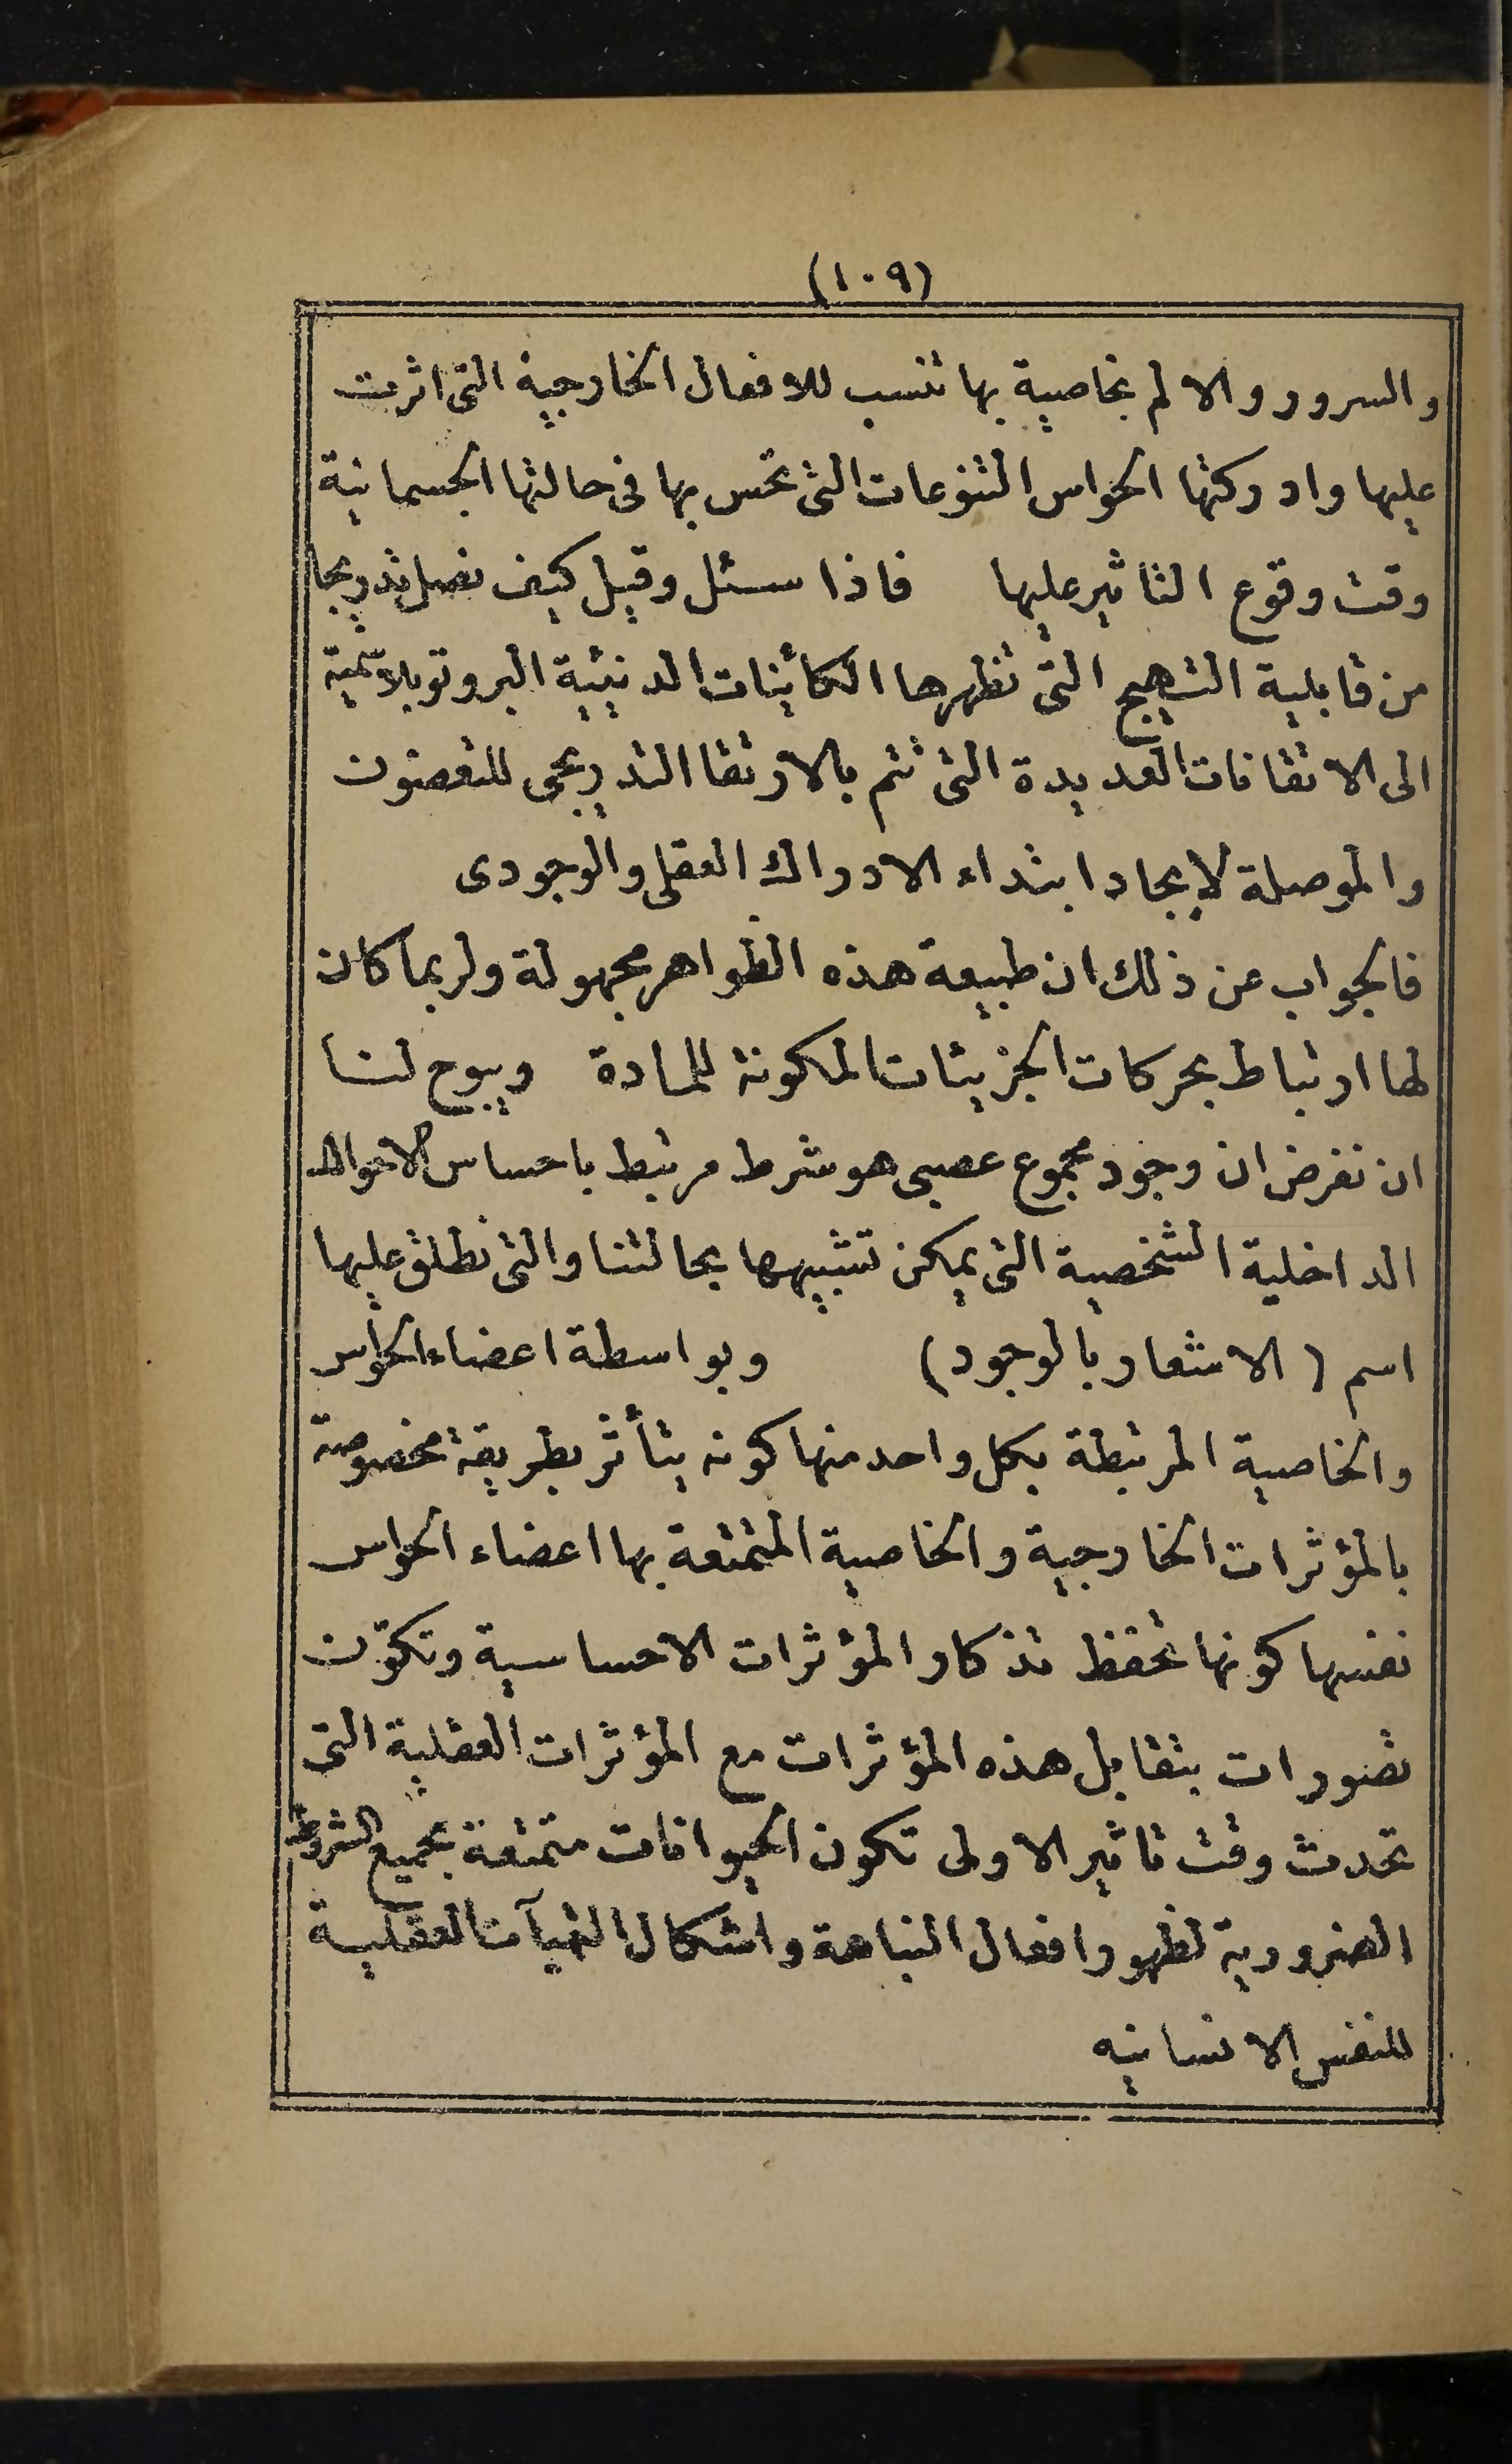 (١٠٩)
والسرور والالم بخاصية بها تنسب للافعال الخارجية التى اثرت
عليها وادركتها الحواس التنوعات التى تحس بها فى حالتها الجسمانية
وقت وقوع التاثير عليها فاذا سئل وقيل كيف نصل تدريجا
من قابلية التهيج التى تظهرها الكائينات الدنيئية البروتوبلاتمية
الى الاتقانات العديدة التى تتم بالارتقا التدريجى للتعضون
والموصلة لايجاد ابتداء الادراك العقلى والوجودى
فالجواب عن ذلك ان طبيعة هذه الظواهر مجهولة ولربما كان
لها ارتباط بحركات الجزيئات المكونة للمادة ويبوح لنا
ان نفرض ان وجود مجموع عصبى هو شرط مرتبط باحساس الاحوال
الداخلية الشخصية التى يمكن تشبيهها بحالتنا والتى نطلق عليها
اسم (الاشعار بالوجود) وبواسطة اعضاء الحواس
والخاصية المرتبطة بكل واحد منها كونه يتأثر بطريقة مخصوصة
بالمؤثرات الخارجية والخاصية المتمتعة بها اعضاء الحواس
نفسها كونها تحفظ تذكار المؤثرات الاحساسية وتكوّن
تصورات بتقابل هذه المؤثرات مع المؤثرات العقلية التى
تحدث وقت تاثير الاولى تكون الحيوانات متمتعة بجميع الشروط
الضرورية لظهور افعال النباهة واشكال الهيآت العقلية
للنفس الانسانيه